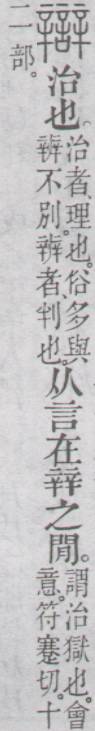 辯
治也。
治者、理也。俗多與
辨不別。辨者、判也。
从言在辡之閒。
謂治獄也。會
意。符蹇切。十
二部。